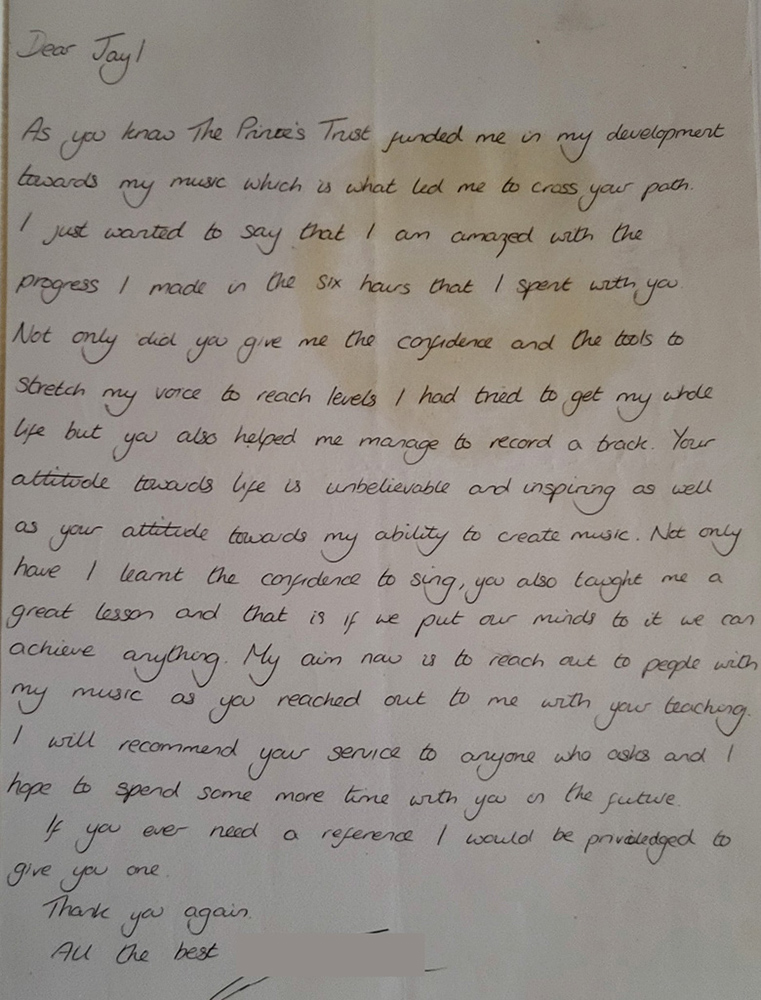 Dear Jay!
As you know The Prince's Trust funded me in my development
towards my music which is what led me to cross your path.
I just wanted to say that I am amazed with the
progress I made in the six hours that I spent with you.
Not only did you give me the confidence and the tools to
stretch my voice to reach levels I had tried to get my whole
life but you also helped me manage to record a track. Your
attitude towards life is unbelievable and inspiring as well
as your attitude towards my ability to create music. Not only
have I learnt the confidence to sing, you also taught me a
great lesson and that is if we put our minds to it we can
achieve anything. My aim now is to reach out to people with
my music as you reached out to me with your teaching.
I will recommend your service to anyone who asks and I
hope to spend some more time with you in the future.
If you ever need a reference I would be priviledged to
give you one.
Thank you again.
All the best